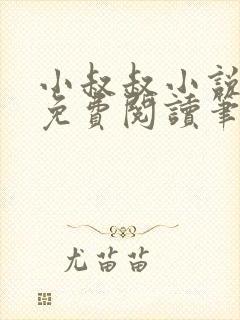 小叔叔小說
免費閱讀筆
尤苗苗